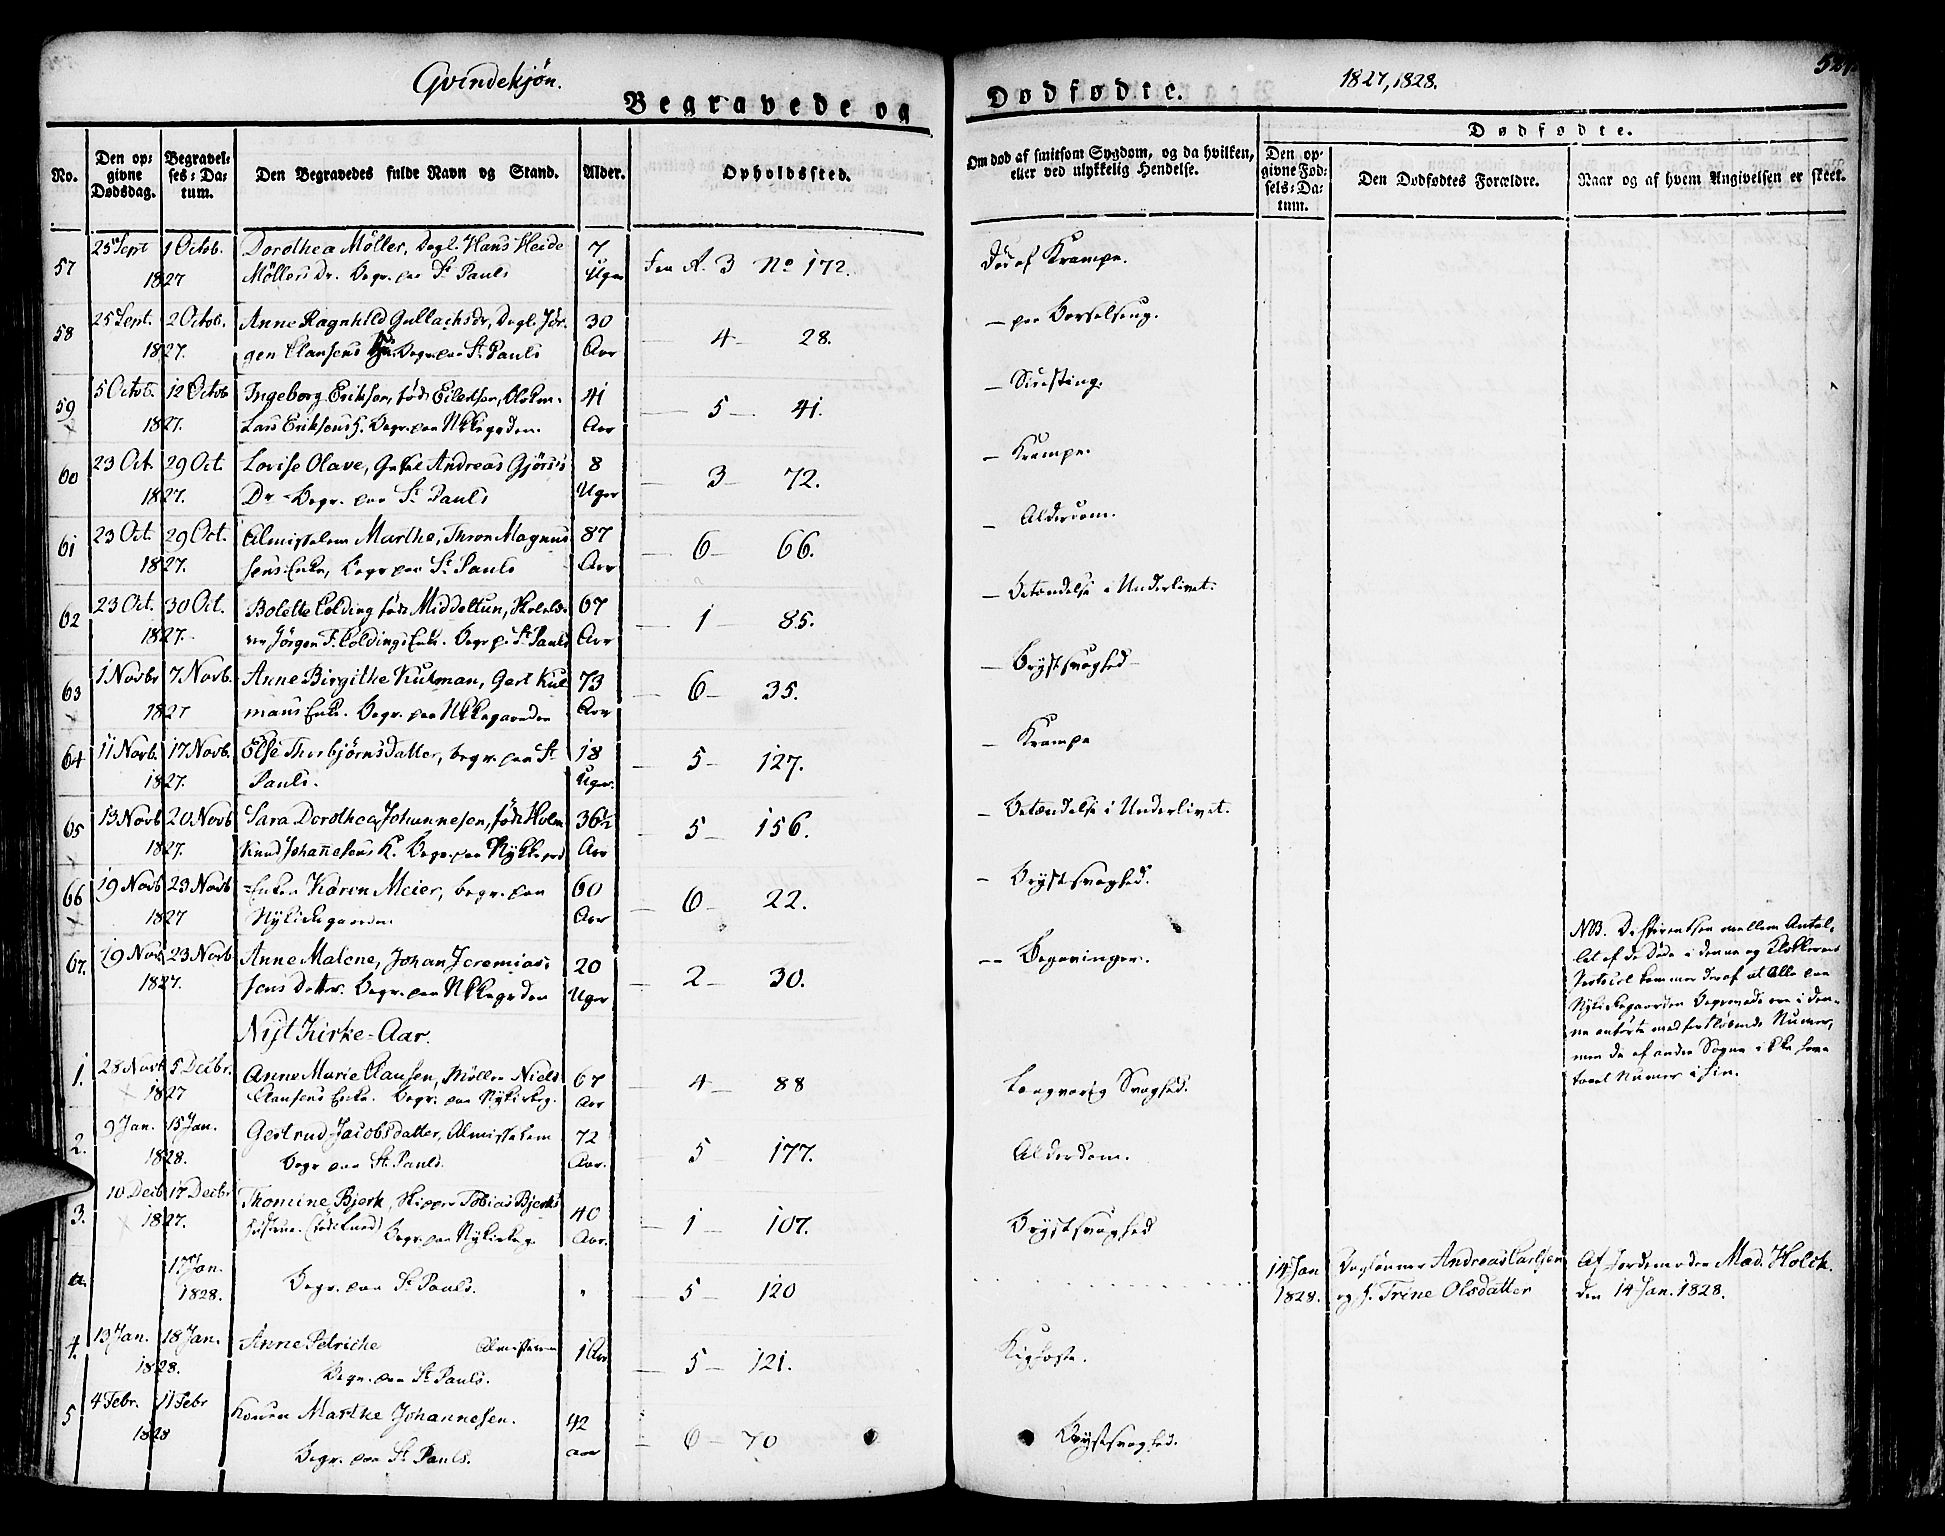 Qvindekjøn.
Begravede og
Dødfødte.
1827, 1828.
No.
Den opgivne Dødsdag.
Begravelses-Datum.
Den Begravedes fulde Navn og Stand.
Alder.
Opholdssted.
Om død af smitsom Sygdom, og da hvilken, eller ved ulykkelig Hendelse.
Dødfødte.
Den opgivne Fødsels-Datum.
Den Dødfødtes Forældre.
Naar og af hvem Angivelsen er skeet.
57 25 Sept 1 Octob. Dorothea Möller, Dagl. Hans Heide 7
1827 Möllers Dr. Begr. paa St Pauls Uger 3 No 172. Død af Krampe.
58 25 Sept. 2 Octob. Anne Ragnhild Gullachsdr, Dagl. Jör- 30
1827. gen Clausens Begr. paa St Pauls Aar 4 28. — paa Barselseng.
59 5 Octob. 12 Octob Ingeborg Eriksen, föd Eilertsen, 41
1827. Lars Eriksens H. Begr. paa NKkegrden. Aar 5 41.
60 23 Oct. 29 Oct. Lovise Olave, Andreas Gjörses 8
1827. Dr Begr. paa St Pauls Uger 3 72. — Krampe.
61 23 Oct. 29 Oct. Almisselem Marthe, Thron Magnus 87
1827. sens Enke, Begr paa St Pauls Aar 6 66. — Alderdom.
62 23 Oct. 30 Oct. Bolette Colding föd Middeltun, 67
1827. Jörgen F. Coldings Enke. Begr p. St Pauls Aar 1 85. — Betændelse i Underlivet.
63 1 Novbr 7 Novb. Anne Birgithe Kulman, Gert Kul 73
1827 mans Enke. Begr. paa NKkegaarden Aar 6 35. — Brystsvaghed
64 11 Novb. 17 Novb. Else Thorbjørnsdatter, begr. paa St 18
1827. Pauls. Uger. 5 127. — Krampe
65 13 Novb 20 Novb Sara Dorothea Johannesen, föd Holm 36½
1827. Knud Johannesens K. Begr. paa Nykkegrd Aar 5 156. — Betændelse i Underlivet.
66 19 Novb 23 Novb Enken Karen Meier, begr. paa 60
1827 Nykirkegaarden Aar 6 22. — Brystsvaghed.
67. 19 Nov 23 Novb Anne Malene, Johan Jeremias- 20
1827. sens Datter. Begr. paa NKkegrden Uger 2 30. — Begavinger.
Nyt Kirke-Aar.
NB. Differentsen mellem Antal-
let af de Døde i denne og Klokkerens
Protocol kommer deraf at Alle paa
Nykirkegaarden Begravede ere i den-
ne anførte med fortløbende Numer,
men de af andre Sogne ikke have
faaet Numer i hin.
1. 28 Novb 5 Decbr. Anne Marie Clausen, Møller Niels 67
1827 Clausens Enke. Begr. paa Nykirkeg. Aar 4 88 Langvarig Svaghed.
2. 9 Jan. 15 Jan. Gertrud Jacobsdatter, Almisselem 72
1828. Begr paa St. Pauls. Aar. 5 177. Alderdom.
3. 10 Decb 17 Decbr Thomine Bjerk, Skipper Tobias Bjerks 40
1827. Hustrue (föd Lund) Begr. paa Nykirkeg. Aar. 1 107. Brystsvaghed
a. 17 Jan. 1828. Begr. paa St Pauls. " 5 120
14 Jan 1828. Daglønner Andreas Carlsen og H. Trine Olsdatter
Af Jordemoder Mad. Holck.
den 14 Jan. 1828.
4. 13 Jan. 18 Jan. Anne Petriche Almisselem 1 Aar
1828. Begr. paa St Pauls. 5 121. Kighoste.
5 4 Febr. 11 Febr Konen Marthe Johannesen. 42
1828 Begr. paa St Pauls. aar 6 70 Brystsvaghed.